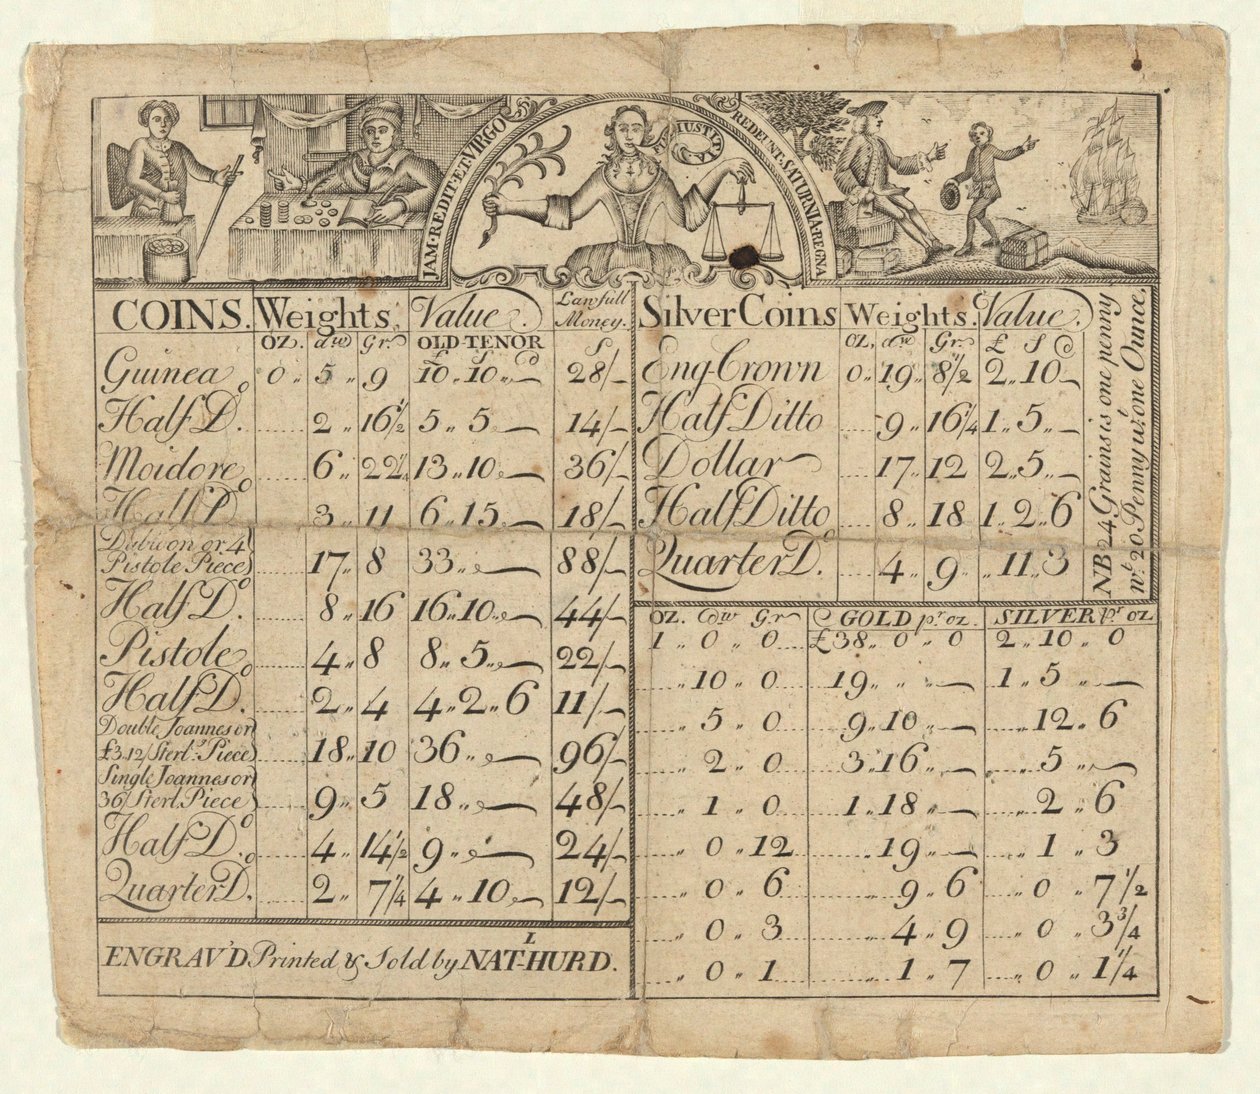 JAM·REDIT·ET·VIRGO
JUSTITIA
REDEUNT·SATURNIA·REGNA
COINS. Weights. Value. Lawfull Money.
OZ. dwt Gr. OLD·TENOR
£ S d S
Guinea 0 〃 5 〃 9 10 〃 10 〃 — 28/—
Half Do. 2 〃 16 1/2 5 〃 5 — 14/—
Moidore 6 〃 22 1/4 13 〃 10 — 36/—
Half Do 3 〃 11 6 〃 15 — 18/—
Dubloon or 4
Pistole Piece 17 〃 8 33 〃 — 88/—
Half Do. 8 〃 16 16 〃 10 〃 — 44/—
Pistole 4 〃 8 8 〃 5 〃 — 22/—
Half Do. 2 〃 4 4 〃 2 〃 6 11/—
Double Joannes or
£3.12/Sterlg. Piece 18 〃 10 36 〃 — 96/—
Single Joannes or
36/Sterl. Piece 9 〃 5 18 〃 — 48/—
Half Do. 4 〃 14 1/2 9 〃 — 24/—
Quarter Do. 2 〃 7 1/4 4 〃 10 — 12/—
ENGRAV'D Printed & Sold by NATL HURD.
Silver Coins Weights. Value.
OZ. dwt Gr. £ S d
Eng Crown 0 〃 19 〃 8 1/2 2 〃 10 —
Half Ditto 9 〃 16 1/4 1 〃 5 〃 —
Dollar 17 〃 12 2 〃 5 —
Half Ditto 8 〃 18 1 〃 2 〃 6
Quarter Do. 4 〃 9 〃 11 〃 3
NB 24 Grans is one penny
wt. 20 Penny wt. one Ounce.
OZ. dwt Gr GOLD pr oz. SILVER pr oz
1 〃 0 〃 0 £38 〃 0 〃 0 2 〃 10 〃 0
〃 10 〃 0 19 〃 〃 — 1 〃 5 〃 —
〃 5 〃 0 9 〃 10 〃 — 〃 12 〃 6
〃 2 〃 0 3 〃 16 〃 — 〃 5 〃 —
〃 1 〃 0 1 〃 18 〃 — 〃 2 〃 6
〃 0 〃 12 〃 19 〃 — 〃 1 〃 3
〃 0 〃 6 〃 9 〃 6 〃 0 〃 7 1/2
〃 0 〃 3 〃 4 〃 9 〃 0 〃 3 3/4
〃 0 〃 1 〃 1 〃 7 〃 0 〃 1 1/4